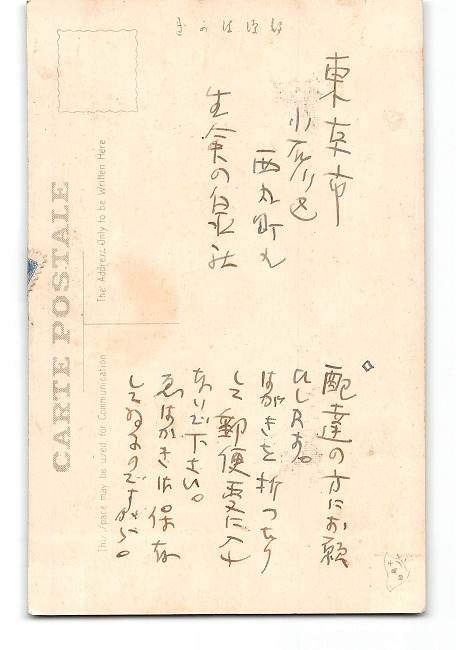 郵便はかき
東京市
小石川区
西丸町九
生命の泉社
配達の方にお願
ひします。
はがきを折つたり
して郵便受に入れ
ないで下さい。
ゑはがきは保存
してゐるのですから。
CARTE POSTALE
The Address Only to be Written Here
This space may be used for Communication